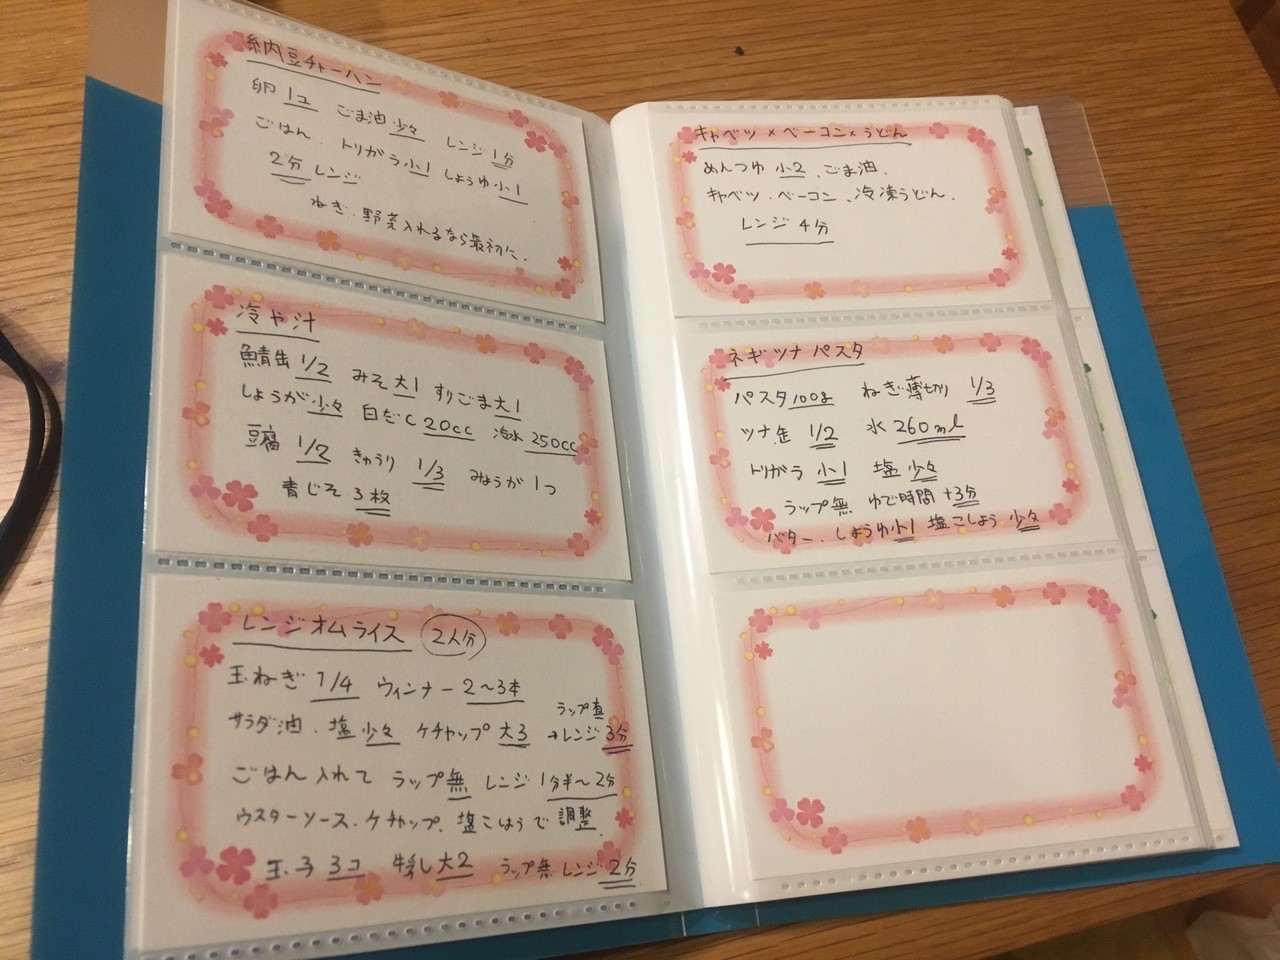 納豆チャーハン
卵 1コ ごま油 少々 レンジ 1分
ごはん トリガラ 小1 しょうゆ 小1
2分 レンジ
ねぎ、野菜入れるなら最初に。
冷や汁
鯖缶 1/2 みそ 大1 すりごま 大1
しょうが 少々 白だし 20cc 冷水 250cc
豆腐 1/2 きゅうり 1/3 みょうが 1つ
青じそ 3枚
レンジオムライス 2人分
玉ねぎ 1/4 ウィンナー 2〜3本
サラダ油、塩 少々 ケチャップ 大3 →レンジ 3分
ごはん 入れて ラップ無 レンジ 1分半〜2分
ウスターソース、ケチャップ、塩こしょうで 調整
玉子 3コ 牛乳 大2 ラップ無 レンジ 2分
キャベツ×ベーコン×うどん
めんつゆ 小2、ごま油、
キャベツ、ベーコン、冷凍うどん、
レンジ 4分
ネギツナパスタ
パスタ 100g ねぎ薄切り 1/3
ツナ缶 1/2 水 260ml
トリガラ 小1 塩 少々
ラップ無 ゆで時間 +3分
バター、しょうゆ小1 塩こしょう 少々